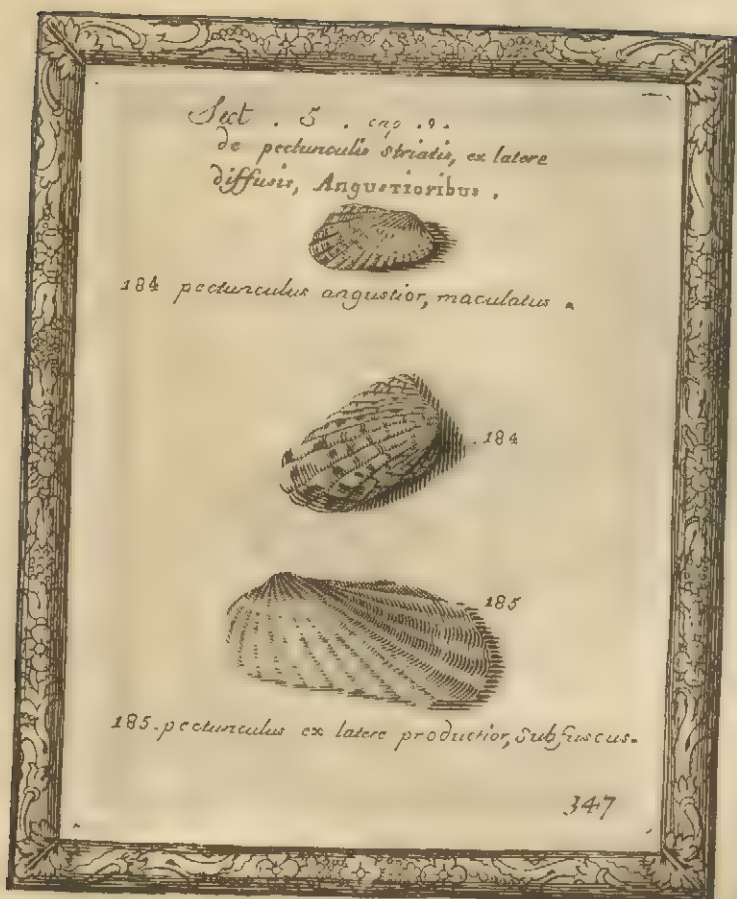 Sect . 5 . cap . 9 .
de pectunculis striatis, ex latere
diffusis, Angustioribus .
184 pectunculus angustior, maculatus .
. 184
185
185. pectunculus ex latere productior, Subfuscus.
347